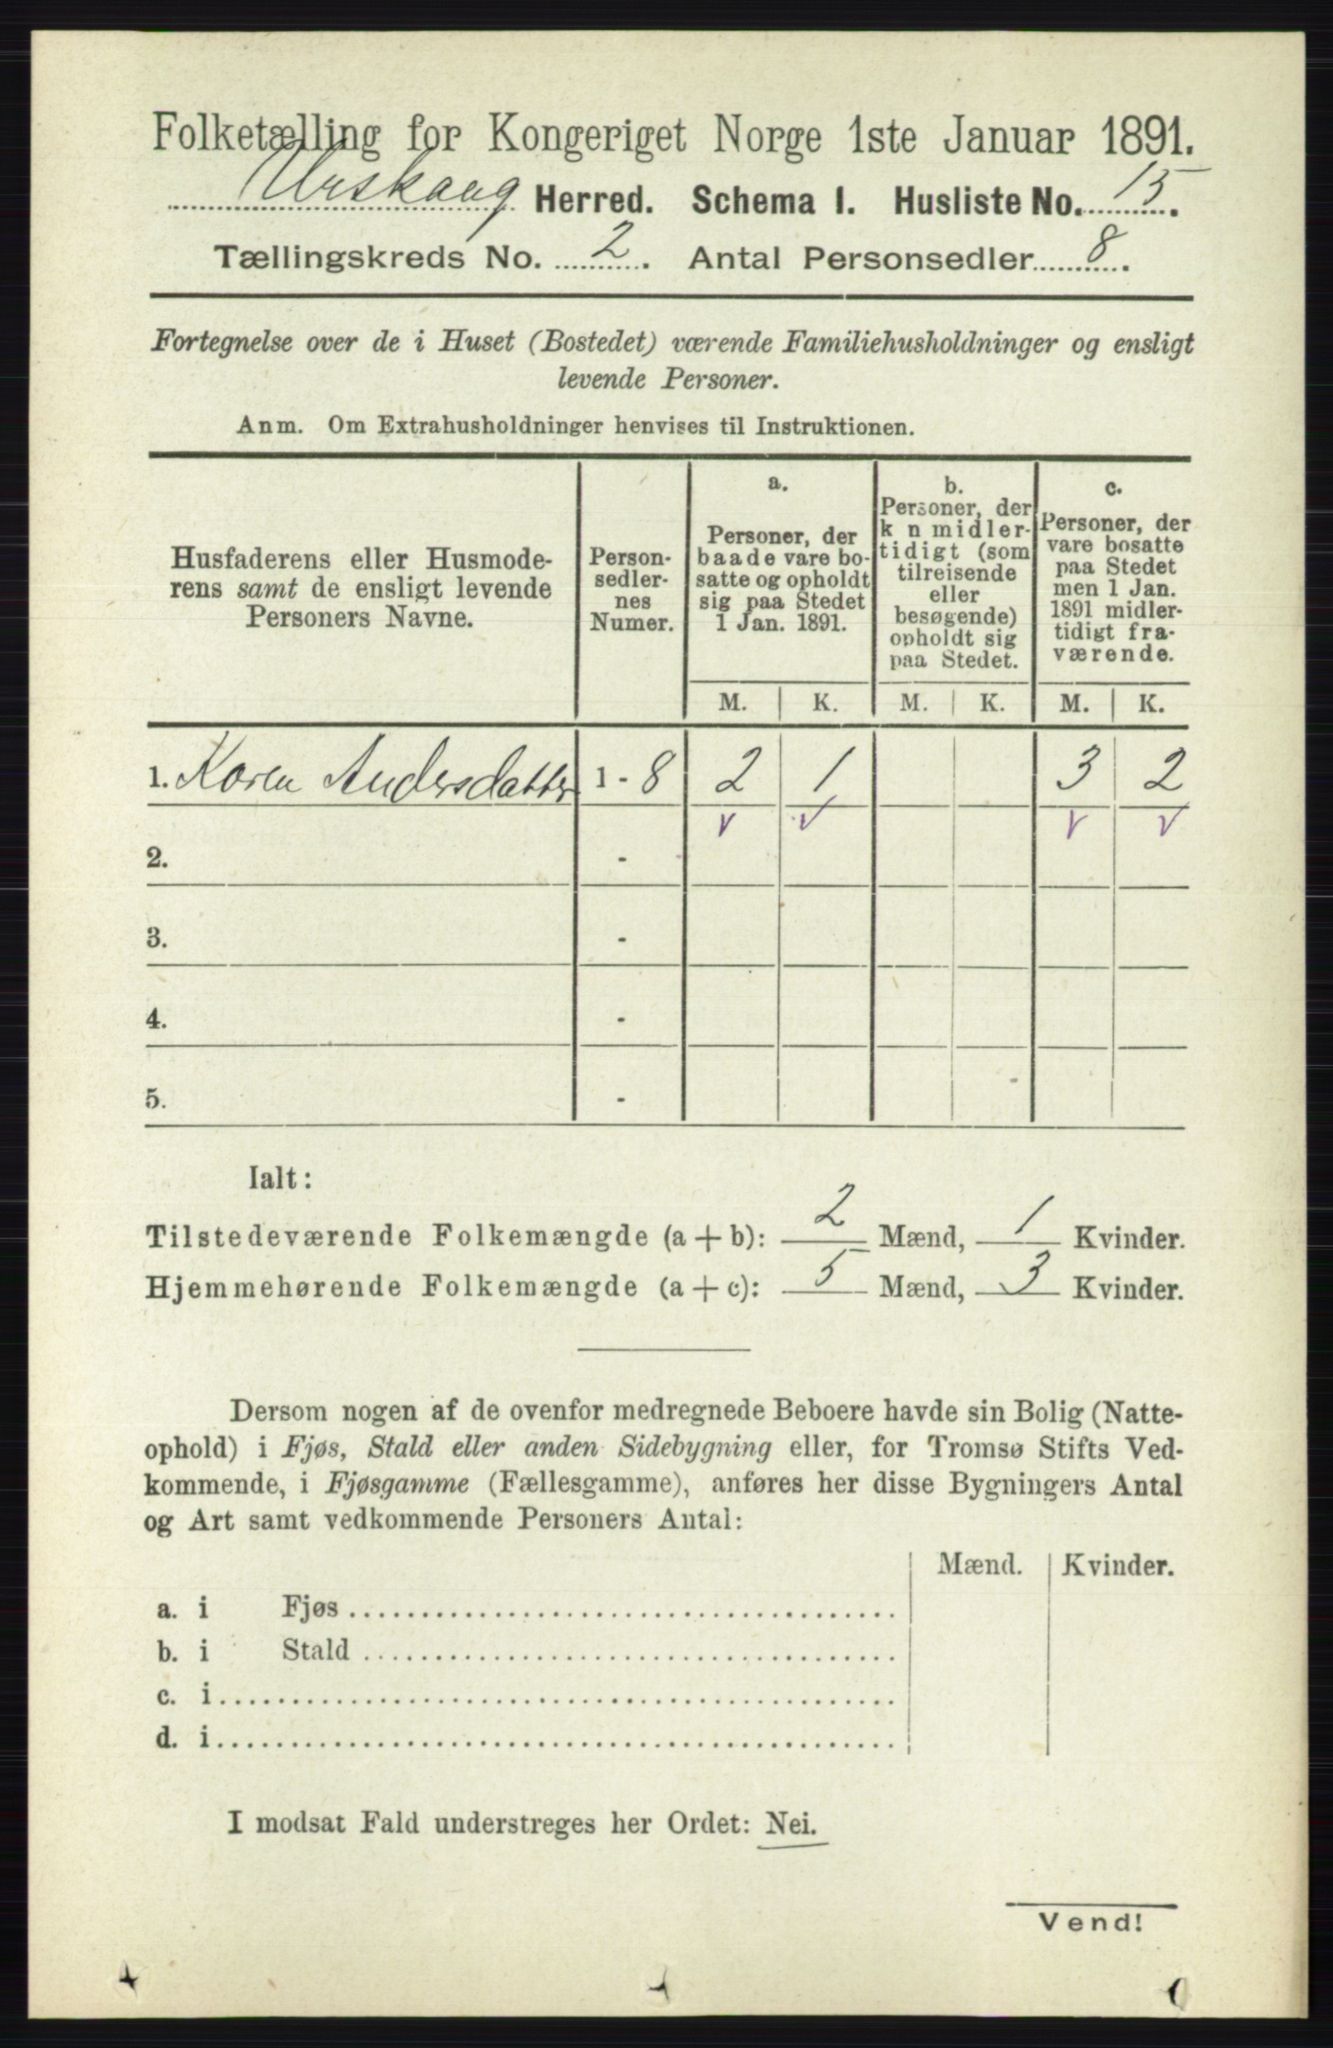 Folketælling for Kongeriget Norge 1ste Januar 1891.
Urskaug Herred. Schema I. Husliste No. 15.
Tællingskreds No. 2. Antal Personsedler 8.
Fortegnelse over de i Huset (Bostedet) værende Familiehusholdninger og ensligt
levende Personer.
Anm. Om Extrahusholdninger henvises til Instruktionen.
Husfaderens eller Husmode-
rens samt de ensligt levende
Personers Navne.
Person-
sedler-
nes
Numer.
a.
Personer, der
baade vare bo-
satte og opholdt
sig paa Stedet
1 Jan. 1891.
b.
Personer, der
k n midler-
tidigt (som
tilreisende
eller
besøgende)
opholdt sig
paa Stedet.
c.
Personer, der
vare bosatte
paa Stedet
men 1 Jan.
1891 midler-
tidigt fra-
værende.
M. K. M. K. M. K.
1. Karen Andersdatter 1 - 8 2 1 3 2
2. -
3. -
4. -
5. -
Ialt:
Tilstedeværende Folkemængde (a + b): 2 Mænd, 1 Kvinder.
Hjemmehørende Folkemængde (a + c): 5 Mænd, 3 Kvinder.
Dersom nogen af de ovenfor medregnede Beboere havde sin Bolig (Natte-
ophold) i Fjøs, Stald eller anden Sidebygning eller, for Tromsø Stifts Ved-
kommende, i Fjøsgamme (Fællesgamme), anføres her disse Bygningers Antal
og Art samt vedkommende Personers Antal:
Mænd. Kvinder.
a. i Fjøs
b. i Stald
c. i
d. i
I modsat Fald understreges her Ordet: Nei.
Vend!